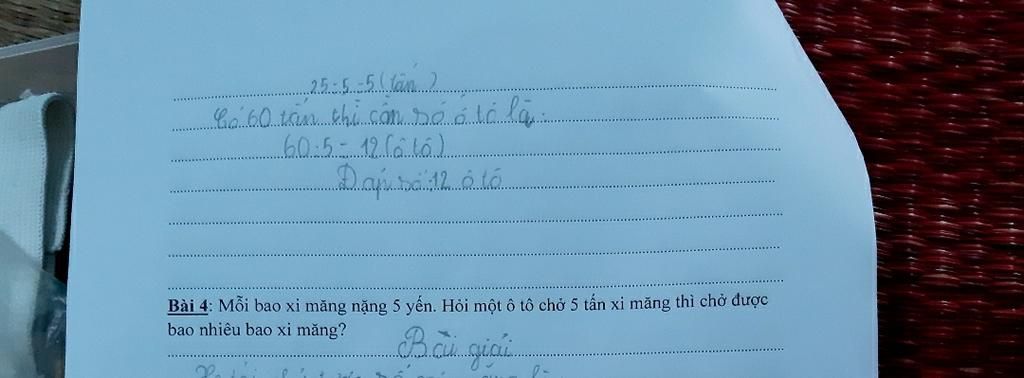 25:5=5(tấn)
Có 60 tấn thì cần số ô tô là:
60:5= 12(ô tô)
Đáp số:12 ô tô
Bài 4: Mỗi bao xi măng nặng 5 yến. Hỏi một ô tô chở 5 tấn xi măng thì chở được
bao nhiêu bao xi măng?
Bài giải